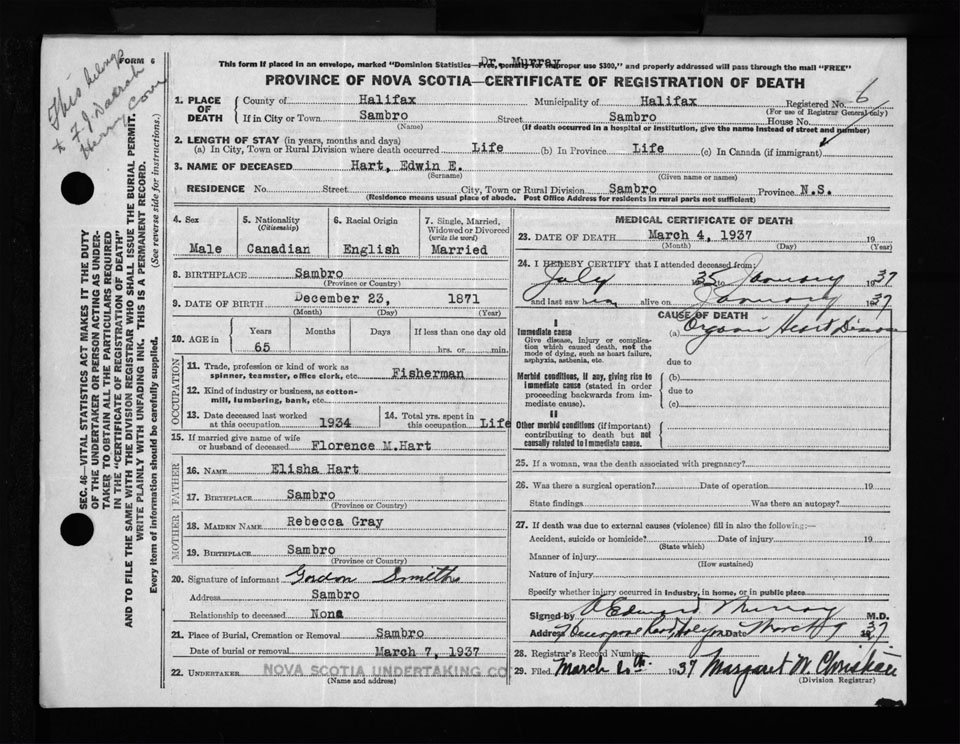 This belongs
to F J Darrah
Herring Cove
FORM 6
Dr. Murray
This form if placed in an envelope, marked "Dominion Statistics—Free, penalty for improper use $300," and properly addressed will pass through the mail "FREE"
PROVINCE OF NOVA SCOTIA—CERTIFICATE OF REGISTRATION OF DEATH
SEC. 46—VITAL STATISTICS ACT MAKES IT THE DUTY
OF THE UNDERTAKER OR PERSON ACTING AS UNDER-
TAKER TO OBTAIN ALL THE PARTICULARS REQUIRED
IN THE "CERTIFICATE OF REGISTRATION OF DEATH"
AND TO FILE THE SAME WITH THE DIVISION REGISTRAR WHO SHALL ISSUE THE BURIAL PERMIT.
WRITE PLAINLY WITH UNFADING INK. THIS IS A PERMANENT RECORD.
Every item of information should be carefully supplied. (See reverse side for instructions.)
1. PLACE OF DEATH County of Halifax Municipality of Halifax Registered No. 6
(For use of Registrar General only)
If in City or Town Sambro Street Sambro House No.
(Name) (If death occurred in a hospital or institution, give the name instead of street and number)
2. LENGTH OF STAY (in years, months and days)
(a) In City, Town or Rural Division where death occurred Life (b) In Province Life (c) In Canada (if immigrant)
3. NAME OF DECEASED Hart, Edwin E.
(Surname) (Given name or names)
RESIDENCE No. Street City, Town or Rural Division Sambro Province N.S.
(Residence means usual place of abode. Post Office Address for residents in rural parts not sufficient)
4. Sex Male
5. Nationality (Citizenship) Canadian
6. Racial Origin English
7. Single, Married, Widowed or Divorced (write the word) Married
8. BIRTHPLACE Sambro
(Province or Country)
9. DATE OF BIRTH December 23, 1871
(Month) (Day) (Year)
10. AGE in Years Months Days If less than one day old
65 hrs. or min.
OCCUPATION
11. Trade, profession or kind of work as
spinner, teamster, office clerk, etc. Fisherman
12. Kind of industry or business, as cotton-
mill, lumbering, bank, etc.
13. Date deceased last worked
at this occupation 1934
14. Total yrs. spent in
this occupation Life
15. If married give name of wife
or husband of deceased Florence M.Hart
FATHER
16. NAME Elisha Hart
17. BIRTHPLACE Sambro
(Province or Country)
MOTHER
18. MAIDEN NAME Rebecca Gray
19. BIRTHPLACE Sambro
(Province or Country)
20. Signature of informant Gordon Smith
Address Sambro
Relationship to deceased None
21. Place of Burial, Cremation or Removal Sambro
Date of burial or removal March 7, 1937
22. UNDERTAKER NOVA SCOTIA UNDERTAKING CO
(Name and address)
MEDICAL CERTIFICATE OF DEATH
23. DATE OF DEATH March 4, 1937 19
(Month) (Day) (Year)
24. I HEREBY CERTIFY that I attended deceased from:
July 1935 to January 1937
and last saw him alive on January 1937
CAUSE OF DEATH
I
Immediate cause (a) Organic Heart Disease
Give disease, injury or complica-
tion which caused death, not the
mode of dying, such as heart failure,
asphyxia, asthenia, etc. due to
Morbid conditions, if any, giving rise to (b)
immediate cause (stated in order due to
proceeding backwards from im-
mediate cause). (c)
II
Other morbid conditions (if important)
contributing to death but not
causally related to immediate cause.
25. If a woman, was the death associated with pregnancy?
26. Was there a surgical operation? Date of operation 19
State findings Was there an autopsy?
27. If death was due to external causes (violence) fill in also the following:—
Accident, suicide or homicide? Date of injury 19
(State which)
Manner of injury
(How sustained)
Nature of injury
Specify whether injury occurred in industry, in home, or in public place
Signed by Edward Murray M.D.
Address Date March 9 1937
28. Registrar's Record Number
29. Filed March 20th 1937 Margaret W. Christie
(Division Registrar)